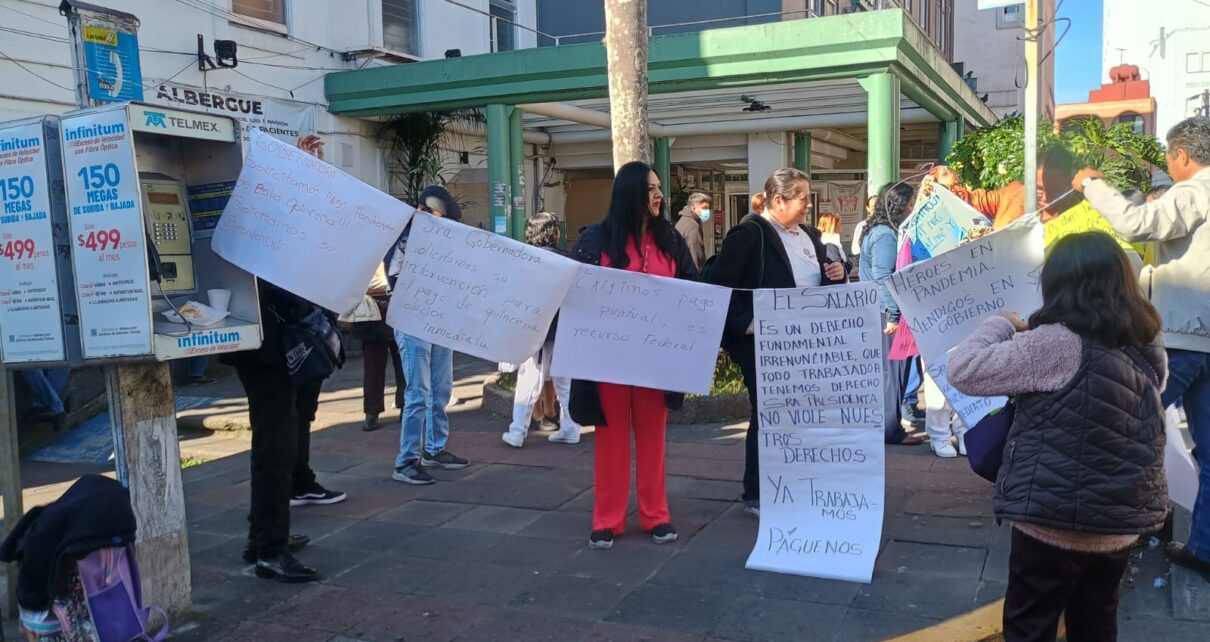 ALBERGUE
DE PACIENTES
TELMEX
infinitum
150
MEGAS
DE SUBIDA Y BAJADA
$499
pesos
al mes
infinitum
150
MEGAS
DE SUBIDA Y BAJADA
$499 pesos
al mes
infinitum
Gobernadora
Solicitamos Pago Pendiente
de Esta quincena!!!
Solicitamos su
intervención
Sra. Gobernadora
Solicitamos su
intervención para
el pago de quincena
Solución
Inmediata
Exigimos Pago
Puntual, es
recurso federal
EL SALARIO
ES UN DERECHO
FUNDAMENTAL E
IRRENUNCIABLE, QUE
TODO TRABAJADOR
TENEMOS DERECHO
SRA PRESIDENTA
NO VIOLE NUES
TROS
DERECHOS
YA TRABAJA-
MOS
PÁGUENOS
HEROES EN
PANDEMIA.
MENDIGOS EN
GOBIERNO